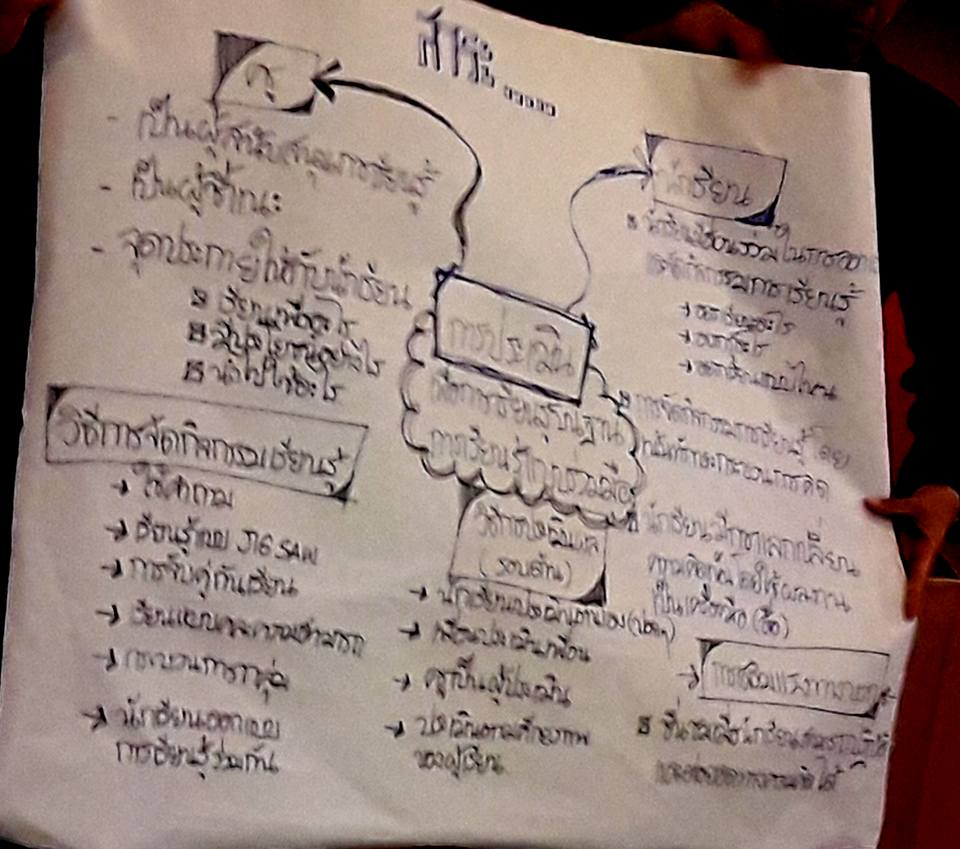 สาระ.....
ครู
- เป็นผู้สนับสนุนการเรียนรู้
- เป็นผู้ชี้แนะ
- จุดประกายให้กับนักเรียน
เรียนเพื่ออะไร
มีประโยชน์อย่างไร
นำไปใช้อะไร
นักเรียน
นักเรียนมีส่วนร่วมในการออก
และจัดกิจกรรมการเรียนรู้
→ อยากเรียนอะไร
→ อะไร
→ อยากเรียนแบบไหน
การจัดกิจกรรมการเรียนรู้ โดย
เน้นทักษะกระบวนการคิด
นักเรียนมีการแลกเปลี่ยน
ความคิดกัน โดยใช้ผลงาน
เป็นเครื่องมือ (สื่อ)
การประเมิน
เพื่อการเรียนรู้บนฐาน
การเรียนรู้แบบร่วมมือ
วิธีการจัดกิจกรรมเรียนรู้
→ ใช้คำถาม
→ เรียนรู้แบบ JIG SAW
→ การจับคู่กันเรียน
→ เรียนแบบคละความสามารถ
→ กระบวนการกลุ่ม
→ นักเรียนออกแบบ
การเรียนรู้ร่วมกัน
วิธีการประเมินผล
(รอบด้าน)
→ นักเรียนประเมินตนเอง
→ เพื่อนประเมินเพื่อน
→ ครูเป็นผู้ประเมิน
→ ประเมินตามศักยภาพ
ของผู้เรียน
→ การเสริมแรงทางบวก
ชื่นชมเมื่อนักเรียนสามารถปฏิบัติ
ได้